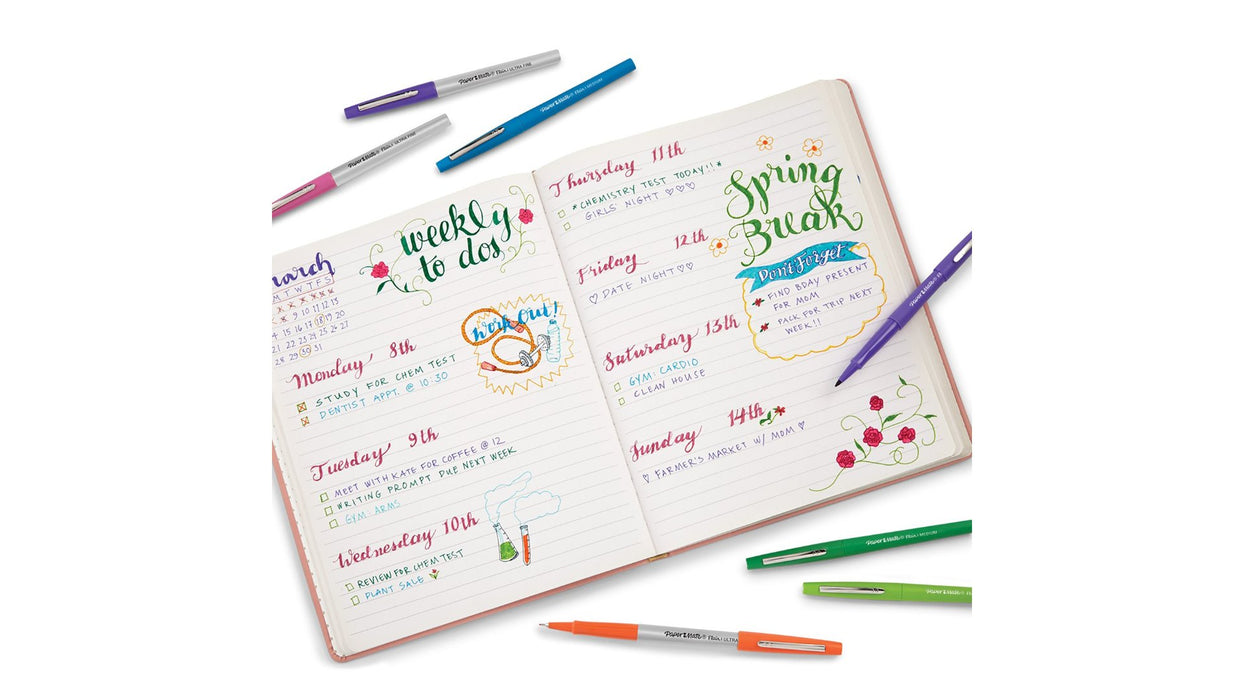 PAPER MATE® FLAIR ULTRA FINE
PAPER MATE® FLAIR MEDIUM
PAPER MATE® FLAIR ULTRA FINE
weekly
to dos
March
M T W T F S
x x x x x x
x x 9 10 11 12 13
14 15 16 17 18 19 20
21 22 23 24 25 26 27
28 29 30 31
work out!
Monday 8th
STUDY FOR CHEM TEST
DENTIST APPT. @ 10:30
Tuesday 9th
MEET WITH KATE FOR COFFEE @ 12
WRITING PROMPT DUE NEXT WEEK
GYM: ARMS
Wednesday 10th
REVIEW FOR CHEM TEST
PLANT SALE
Thursday 11th
*CHEMISTRY TEST TODAY!!*
GIRLS' NIGHT ♡♡♡
Friday 12th
♡ DATE NIGHT ♡♡
Saturday 13th
GYM: CARDIO
CLEAN HOUSE
Sunday 14th
♡ FARMER'S MARKET W/ MOM ♡
Spring
Break
Don't Forget
FIND BDAY PRESENT
FOR MOM
PACK FOR TRIP NEXT
WEEK!!
PAPER MATE® FLAIR
PAPER MATE® FLAIR MEDIUM
PAPER MATE®
PAPER MATE® FLAIR ULTRA